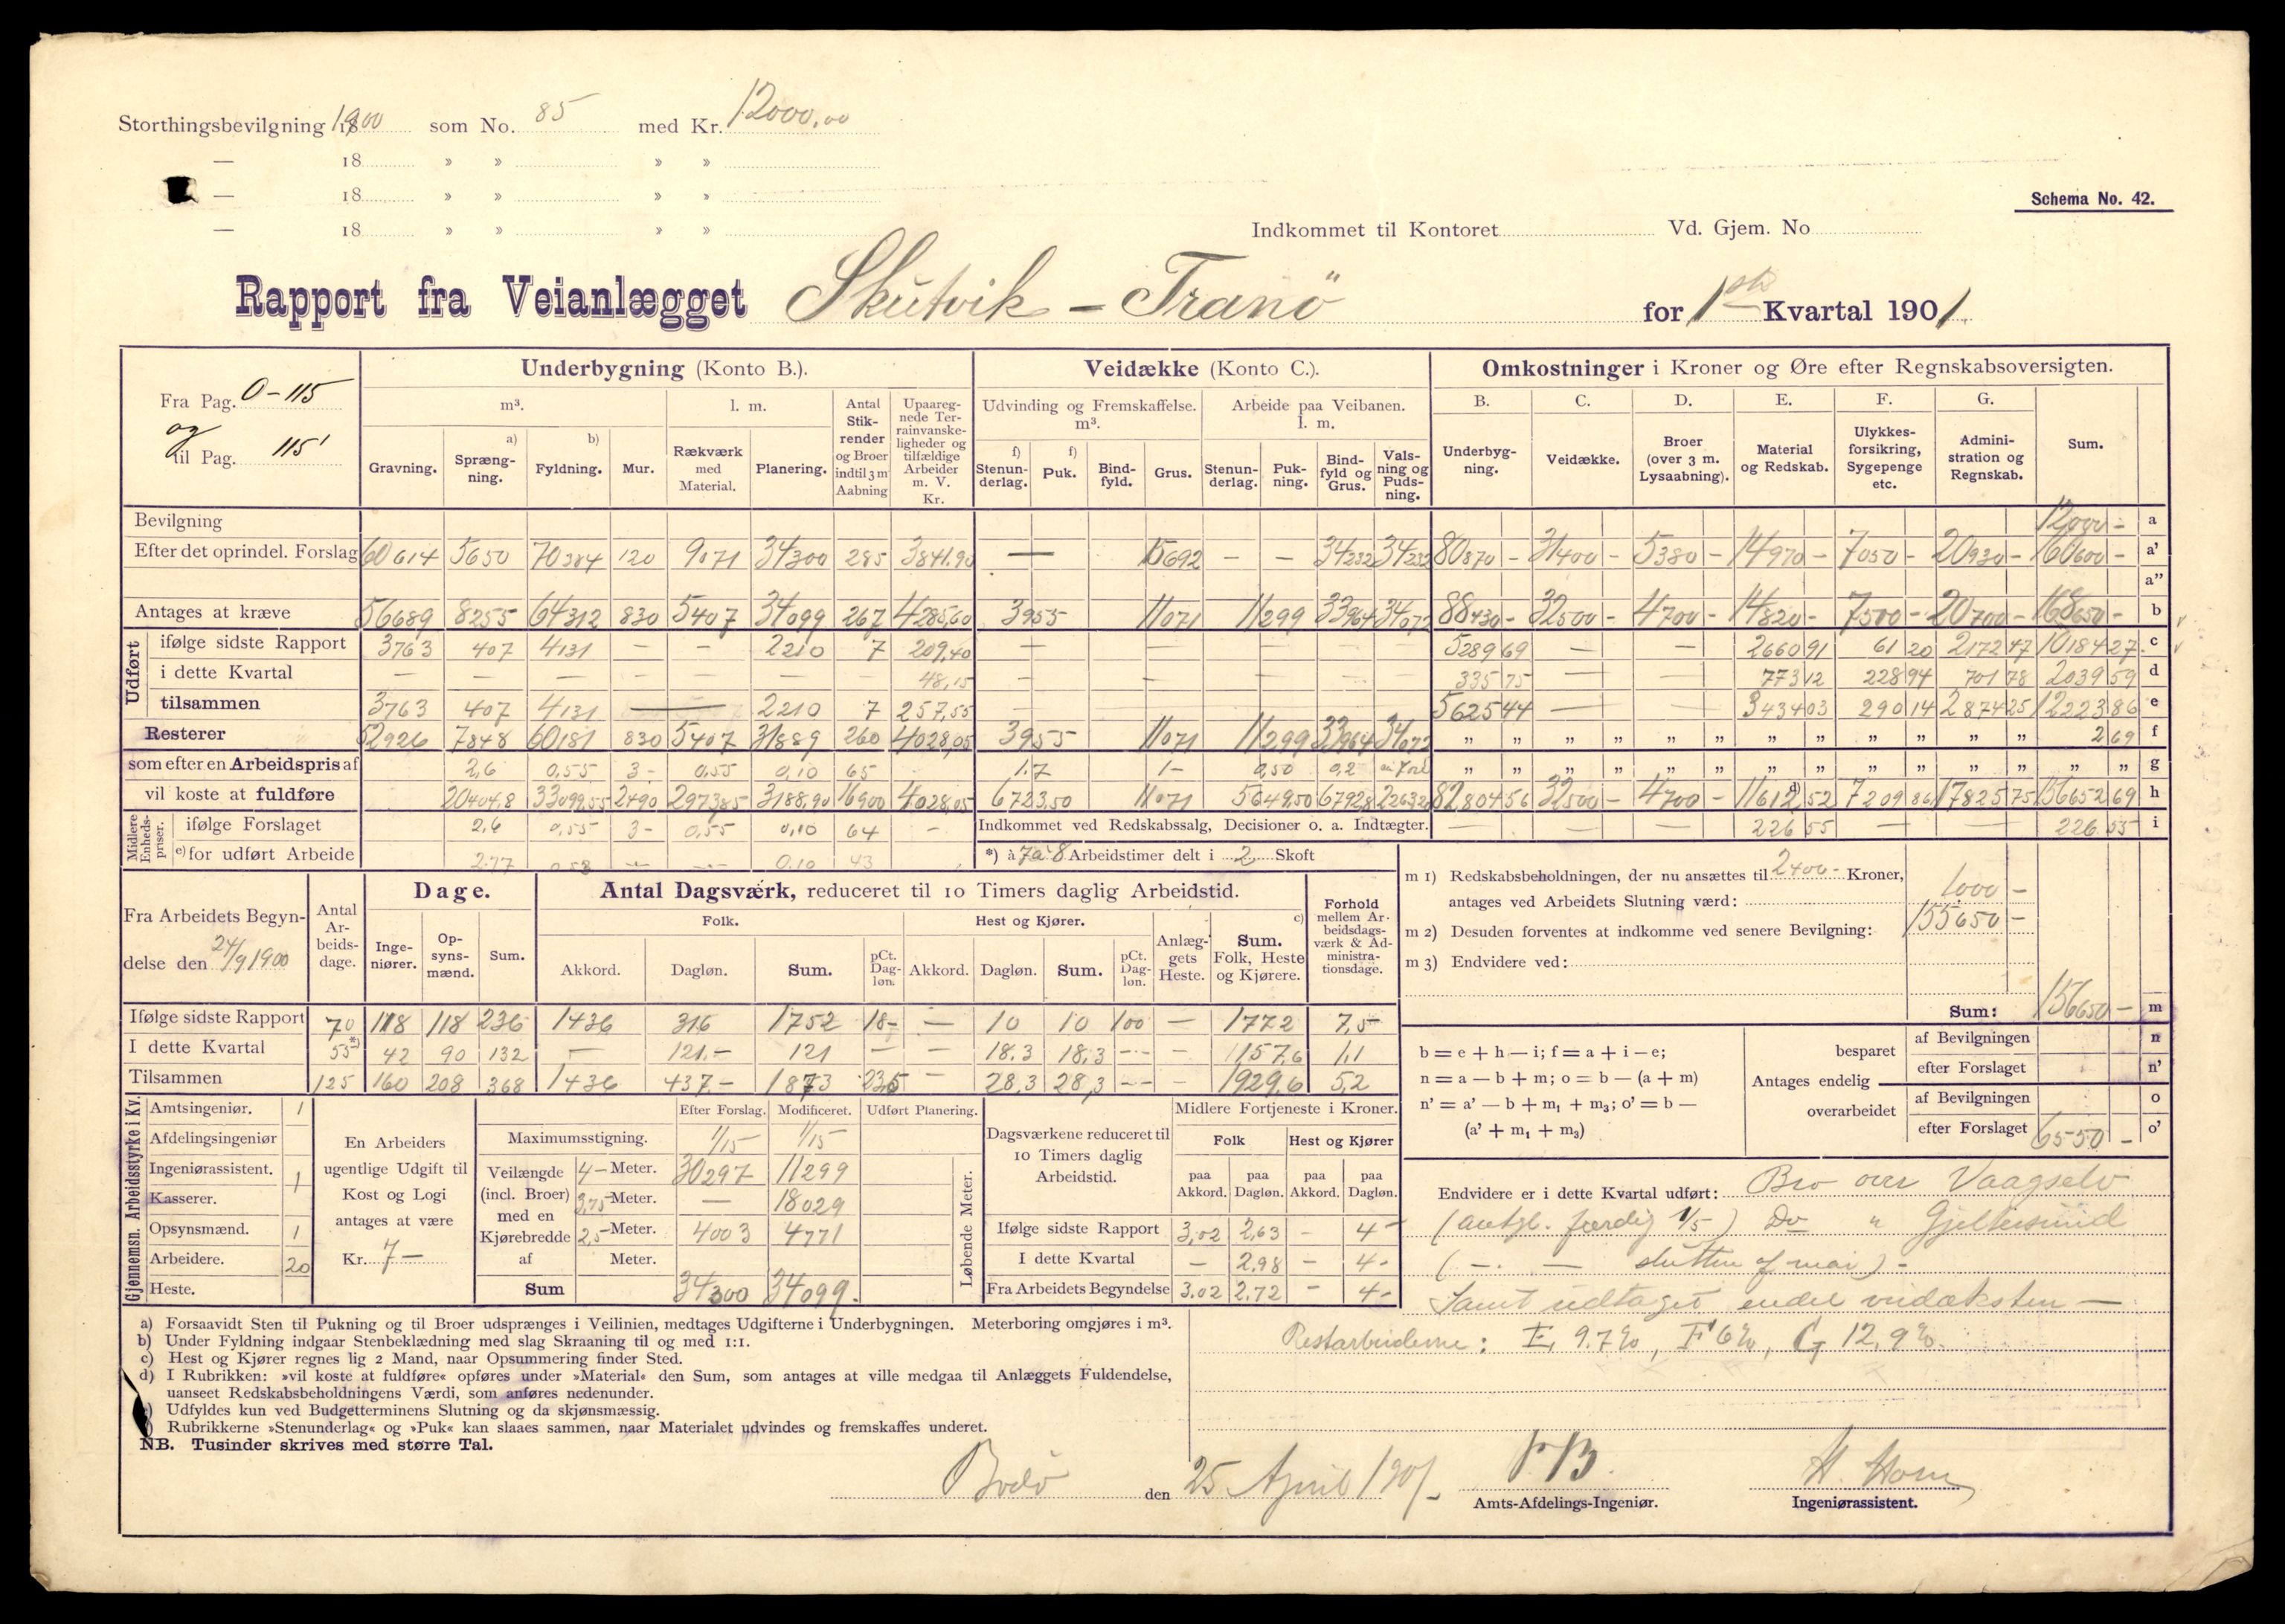 Storthingsbevilgning 1900 som No. 85 med Kr. 12000,00
— 18 » » » »
— 18 » » » »
— 18 » » » »
Schema No. 42.
Indkommet til Kontoret Vd. Gjem. No
Rapport fra Veianlægget Skutvik – Tranö for 1ste Kvartal 1901
Fra Pag. 0 – 115
og
til Pag. 115'
Underbygning (Konto B.).
m³. l. m.
a) b)
Gravning. Sprængning. Fyldning. Mur. Rækværk med Material. Planering. Antal Stikrender og Broer indtil 3 m Aabning Upaaregnede Terrainvanskeligheder og tilfældige Arbeider m. V. Kr.
Veidække (Konto C.).
Udvinding og Fremskaffelse. m³. Arbeide paa Veibanen. l. m.
f) Stenunderlag. f) Puk. Bindfyld. Grus. Stenunderlag. Pukning. Bindfyld og Grus. Valsning og Pudsning.
Omkostninger i Kroner og Øre efter Regnskabsoversigten.
B. C. D. E. F. G.
Underbygning. Veidække. Broer (over 3 m. Lysaabning). Material og Redskab. Ulykkesforsikring, Sygepenge etc. Administration og Regnskab. Sum.
Bevilgning 12000 – a
Efter det oprindel. Forslag 60614 5650 70384 120 9071 34300 285 3841.90 — 15692 – – 34232 34232 80870 – 31400 – 5380 – 14970 – 7050 – 20930 – 160600 – a'
a"
Antages at kræve 56689 8255 64312 830 5407 34099 267 4285,60 3955 11071 11299 33964 34072 88430 – 32500 – 4700 – 14820 – 7500 – 20700 – 168650 – b
Udført
ifølge sidste Rapport 3763 407 4131 — – 2210 7 209,40 — — — — — 5289 69 — — 2660 91 61 20 2172 47 10184 27 c
i dette Kvartal — — — — — — – 48,15 — — — — — 335 75 — — 773 12 228 94 701 78 2039 59 d
tilsammen 3763 407 4131 — 2210 7 257,55 — — — — — 5625 44 — — 3434 03 290 14 2874 25 12223 86 e
Resterer 52926 7848 60181 830 5407 31889 260 4028,05 3955 11071 11299 33964 34072 „ „ „ „ „ „ „ „ „ „ „ „ 2 69 f
som efter en Arbeidspris af 2,6 0,55 3– 0,55 0,10 65 1.7 1– 0,50 0,2 „ „ „ „ „ „ „ „ „ „ „ „ „ „ g
vil koste at fuldføre 20404,8 33099,55 2490 2973,85 3188,90 16900 4028,05 6723,50 11071 5649,50 6792,8 82,804 56 32500 – 4700 – 11612 52 7209 86 17825 75 156652 69 h
Midlere Enhedspriser.
ifølge Forslaget 2,6 0,55 3– 0,55 0,10 64 –
Indkommet ved Redskabssalg, Decisioner o. a. Indtægter. — — — 226 55 — — 226 55 i
e) for udført Arbeide 2.77 0.58 — — 0.10 43
*) à 7 à 8 Arbeidstimer delt i 2 Skoft
Fra Arbeidets Begyndelse den 24/9 1900
Antal Arbeidsdage.
Dage.
Ingeniører. Opsynsmænd. Sum.
Antal Dagsværk, reduceret til 10 Timers daglig Arbeidstid.
Folk. Hest og Kjører.
Akkord. Dagløn. Sum. pCt. Dagløn. Akkord. Dagløn. Sum. pCt. Dagløn. Anlæggets Heste. c) Sum. Folk, Heste og Kjørere.
Forhold mellem Arbeidsdagsværk & Administrationsdage.
Ifølge sidste Rapport 70 118 118 236 1436 316 1752 18– — 10 10 100 — 1772 7,5
I dette Kvartal 55*) 42 90 132 — 121.– 121 — — 18.3 18,3 – – 157,6 1,1
Tilsammen 125 160 208 368 1436 437.– 1873 23,5 – 28,3 28,3 – – 1929,6 5,2
m 1) Redskabsbeholdningen, der nu ansættes til 2400 – Kroner,
antages ved Arbeidets Slutning værd: 1000 –
m 2) Desuden forventes at indkomme ved senere Bevilgning: 155650 –
m 3) Endvidere ved:
Sum: 156650 – m
b = e + h — i; f = a + i — e;
n = a — b + m; o = b — (a + m)
n' = a' — b + m₁ + m₃; o' = b —
(a' + m₁ + m₃)
Antages endelig
besparet
af Bevilgningen n
efter Forslaget n'
overarbeidet
af Bevilgningen o
efter Forslaget 6550 – o'
Gjennemsn. Arbeidsstyrke i Kv.
Amtsingeniør. 1
Afdelingsingeniør
Ingeniørassistent. 1
Kasserer.
Opsynsmænd. 1
Arbeidere. 20
Heste.
En Arbeiders
ugentlige Udgift til
Kost og Logi
antages at være
Kr. 7 –
Efter Forslag. Modificeret. Udført Planering.
Maximumsstigning. 1/15 1/15
Veilængde (incl. Broer) med en Kjørebredde af
4 – Meter. 30297 11299
3,75 Meter. — 18029
2,5 Meter. 4003 4771
Meter.
Sum 34300 34099.
Løbende Meter.
Dagsværkene reduceret til
10 Timers daglig
Arbeidstid.
Midlere Fortjeneste i Kroner.
Folk Hest og Kjører
paa Akkord. paa Dagløn. paa Akkord. paa Dagløn.
Ifølge sidste Rapport 3,02 2,63 – 4 –
I dette Kvartal – 2,98 – 4 –
Fra Arbeidets Begyndelse 3,02 2,72 – 4 –
Endvidere er i dette Kvartal udført: Bro over Vaagselv
(antgl. færdig 1/5) Do " Gjeltersund
( – . — slutten af mai) –
Samt udtaget endel veidæksten —
Restarbeiderne: E 9.7 %, F 6 %, G 12,9 %.
a) Forsaavidt Sten til Pukning og til Broer udsprænges i Veilinien, medtages Udgifterne i Underbygningen. Meterboring omgjøres i m³.
b) Under Fyldning indgaar Stenbeklædning med slag Skraaning til og med 1:1.
c) Hest og Kjører regnes lig 2 Mand, naar Opsummering finder Sted.
d) I Rubrikken: »vil koste at fuldføre« opføres under »Material« den Sum, som antages at ville medgaa til Anlæggets Fuldendelse,
uanseet Redskabsbeholdningens Værdi, som anføres nedenunder.
Udfyldes kun ved Budgetterminens Slutning og da skjønsmæssig.
Rubrikkerne »Stenunderlag« og »Puk« kan slaaes sammen, naar Materialet udvindes og fremskaffes underet.
NB. Tusinder skrives med større Tal.
Bodö den 25 April 1901
Amts-Afdelings-Ingeniør.
H. Horn
Ingeniørassistent.